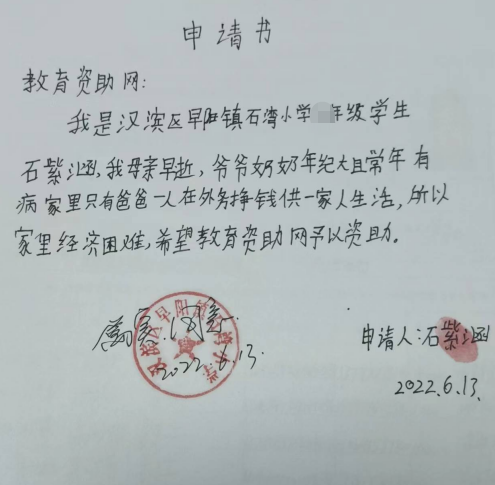 申请书
教育资助网:
我是汉滨区早阳镇石湾小学年级学生
石紫涵,我母亲早逝,爷爷奶奶年纪大且常年有
病家里只有爸爸一人在外务挣钱供一家人生活,所以
家里经济困难,希望教育资助网予以资助。
属实.
2022.6.13.
申请人:石紫涵
2022.6.13